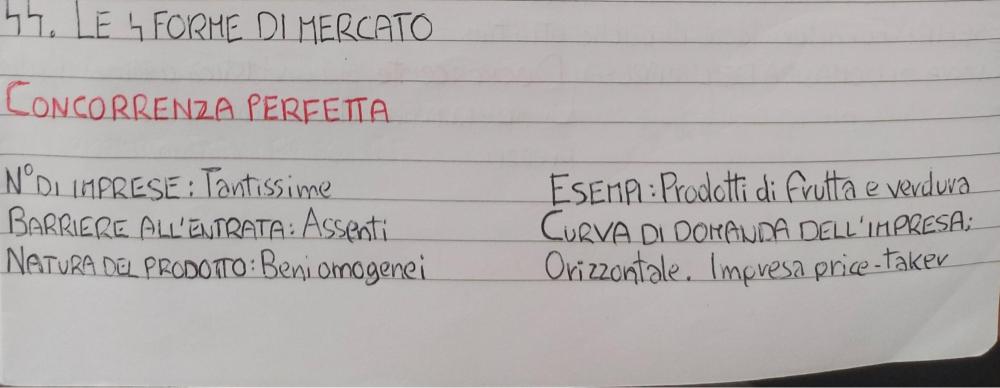 44. LE 4 FORME DI MERCATO
CONCORRENZA PERFETTA
N° DI IMPRESE: Tantissime
BARRIERE ALL'ENTRATA: Assenti
NATURA DEL PRODOTTO: Beni omogenei
ESEMPI: Prodotti di frutta e verdura
CURVA DI DOMANDA DELL'IMPRESA:
Orizzontale. Impresa price-taker